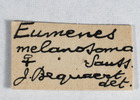 Eumenes
melanosoma
♀ Sauss.
J. Bequaert
det.